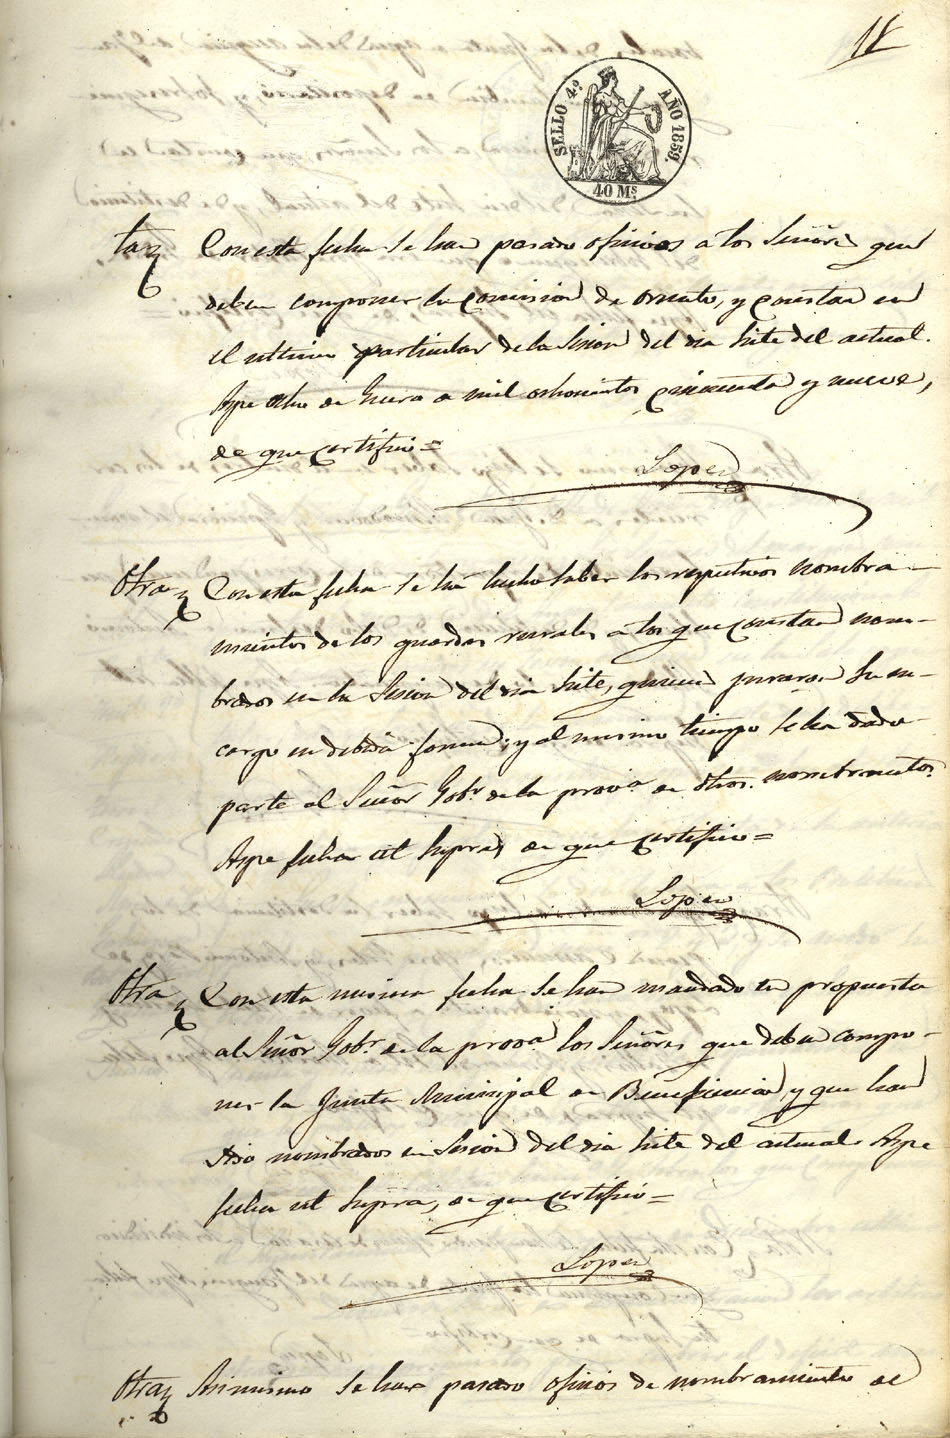 18
SELLO 4º AÑO 1859.
40 Ms.
Con esta fecha se han pasado oficios a los Señores que
deben componer la Comision de ornato, y constan en
el ultimo particular de la Sesion del dia siete del actual.
Aspe ocho de Enero de mil ochocientos cincuenta y nueve,
de que certifico=
Lopez
Otra Con esta fecha se ha hecho saber los respectivos nombra-
mientos de los guardas rurales a los que constan nom-
brados en la Sesion del dia siete, quienes juraron su en-
cargo en debida forma; y al mismo tiempo se ha dado
parte al Señor Gobr. de la prova. de dhos. nombramientos.
Aspe fecha ut supra, de que certifico=
Lopez
Otra Con esta misma fecha se han mandado en propuesta
al Señor Gobr. de la prova. los Señores que deben compo-
ner la Junta Municipal de Beneficencia, y que han
sido nombrados en Sesion del dia siete del actual. Aspe
fecha ut supra, de que certifico=
Lopez
Otra Asimismo se han pasado oficios de nombramiento de